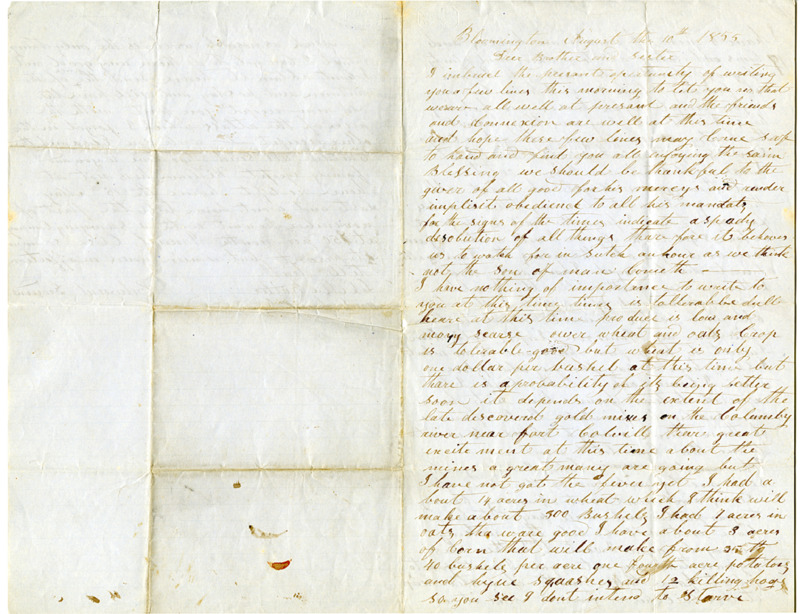 Bloomington August the 10th 1855
Dear Brother and Sister
I imbrace the presant opertunity of writing
you a few lines this morning to let you no that
we are all well at presant and the friends
and Connexion are well at this time
and hope these few lines may Come saf
to hand and find you all injoying the saim
Blessing we should be thankful to the
giver of all good for his mercys and render
implisit obedience to all his mandats
for the signs of the times indicate a spedy
disolution of all things thare fore it behoves
us to watch for in sutch an hour as we think
not the son of man Cometh
I have nothing of importance to write to
you at this time times is tollerable dull
heare at this time produce is low and
mony scarse over wheat and oats Crop
is tolerable good but wheat is only
one dollar per bushel at this time but
thare is a probability of its being better
soon it depends on the extent of the
late discoverd gold mines on the Columby
river near fort Colvill thare great
excitement at this time about the
mines a great many are going but
I have not gote the fever yet I had a
bout 14 acres in wheat which I think will
make about 300 Bushels I had acres in
oats the ware good I have about 3 acres
of Corn that will make from 35 to
40 bushels per acre one fourth acre potatoes
and squashes and 12 killing hogs
so you see I dont intend to Starve